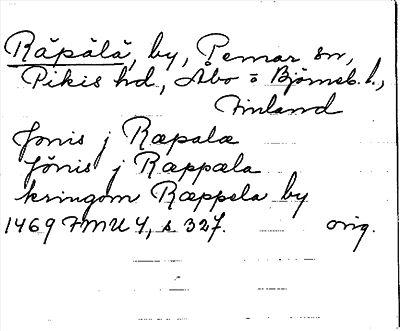 Räpälä, by, Pemar sn,
Pikis hd., Åbo o Björneb. l.,
Finland
Jonis j Ræpalæ
Jönis j Ræppæla
kringom Ræppela by
1469 FMU 4, s 327. orig.